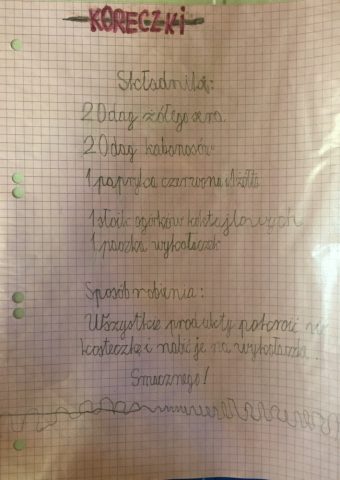 KORECZKI
Składniki:
20dag żółtego sera
20dag kabanosów
1 papryka czerwona i żółta
1 słoik ogórków koktajlowych
1 paczka wykałaczek
Sposób robienia:
Wszystkie produkty pokroić w
kosteczkę i nabić je na wykałaczki.
Smacznego!